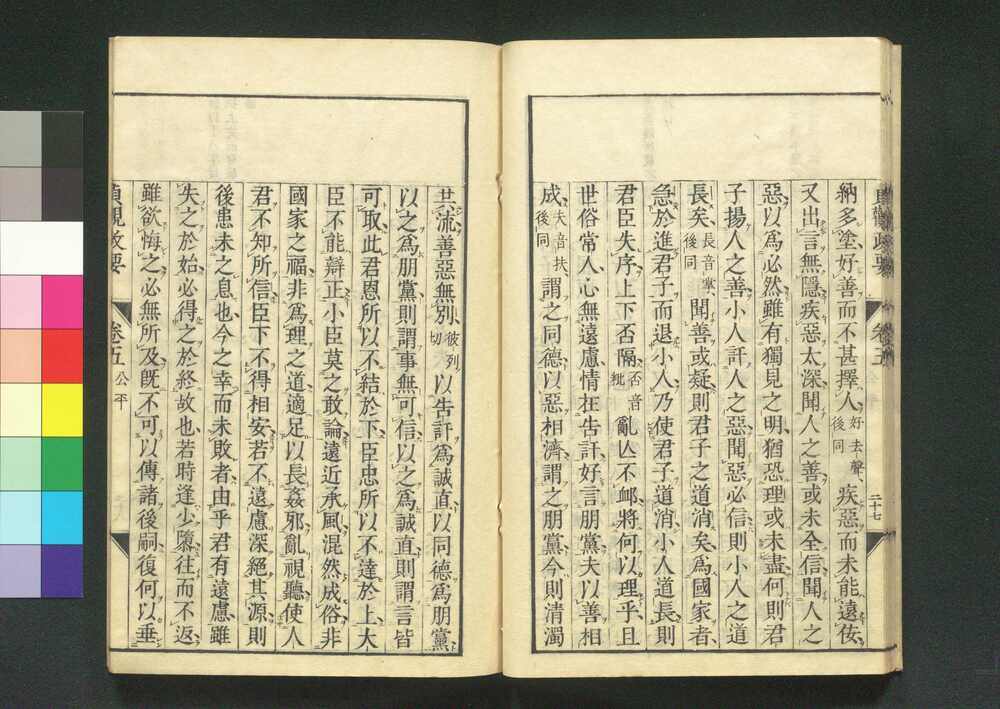 貞觀政要
卷五
二十七
納多塗好善而不甚擇人好去聲後同疾惡而未能遠佞
又出言無隱疾惡太深聞人之善或未全信聞人之
惡以爲必然雖有獨見之明猶恐理或未盡何則君
子揚人之善小人訐人之惡聞惡必信則小人之道
長矣長音掌後同聞善或疑則君子之道消矣爲國家者
急於進君子而退小人乃使君子道消小人道長則
君臣失序上下否隔否音秕亂亾不䘏將何以理乎且
世俗常人心無遠慮情在告訐好言朋黨夫以善相
成夫音扶後同謂之同德以惡相濟謂之朋黨今則清濁
共流善惡無別彼列切以告訐爲誠直以同德爲朋黨
以之爲朋黨則謂事無可信以之爲誠直則謂言皆
可取此君恩所以不結於下臣忠所以不達於上大
臣不能辯正小臣莫之敢論遠近承風混然成俗非
國家之福非爲理之道適足以長姦邪亂視聽使人
君不知所信臣下不得相安若不遠慮深絕其源則
後患未之息也今之幸而未敗者由乎君有遠慮雖
失之於始必得之於終故也若時逢少隳往而不返
雖欲悔之必無所及旣不可以傳諸後嗣復何以垂
貞觀政要
卷五
公平